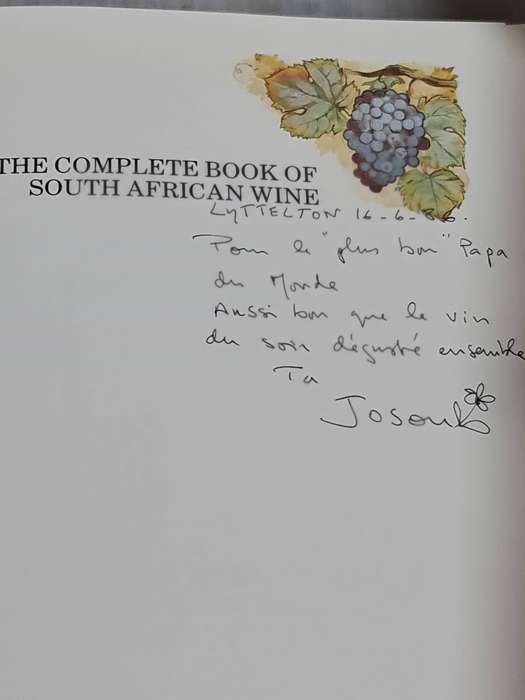 THE COMPLETE BOOK OF
SOUTH AFRICAN WINE
LYTTELTON 16-6-86.
Pour le "plus bon" Papa
du Monde
Aussi bon que le vin
du soir dégusté ensemble
Ta